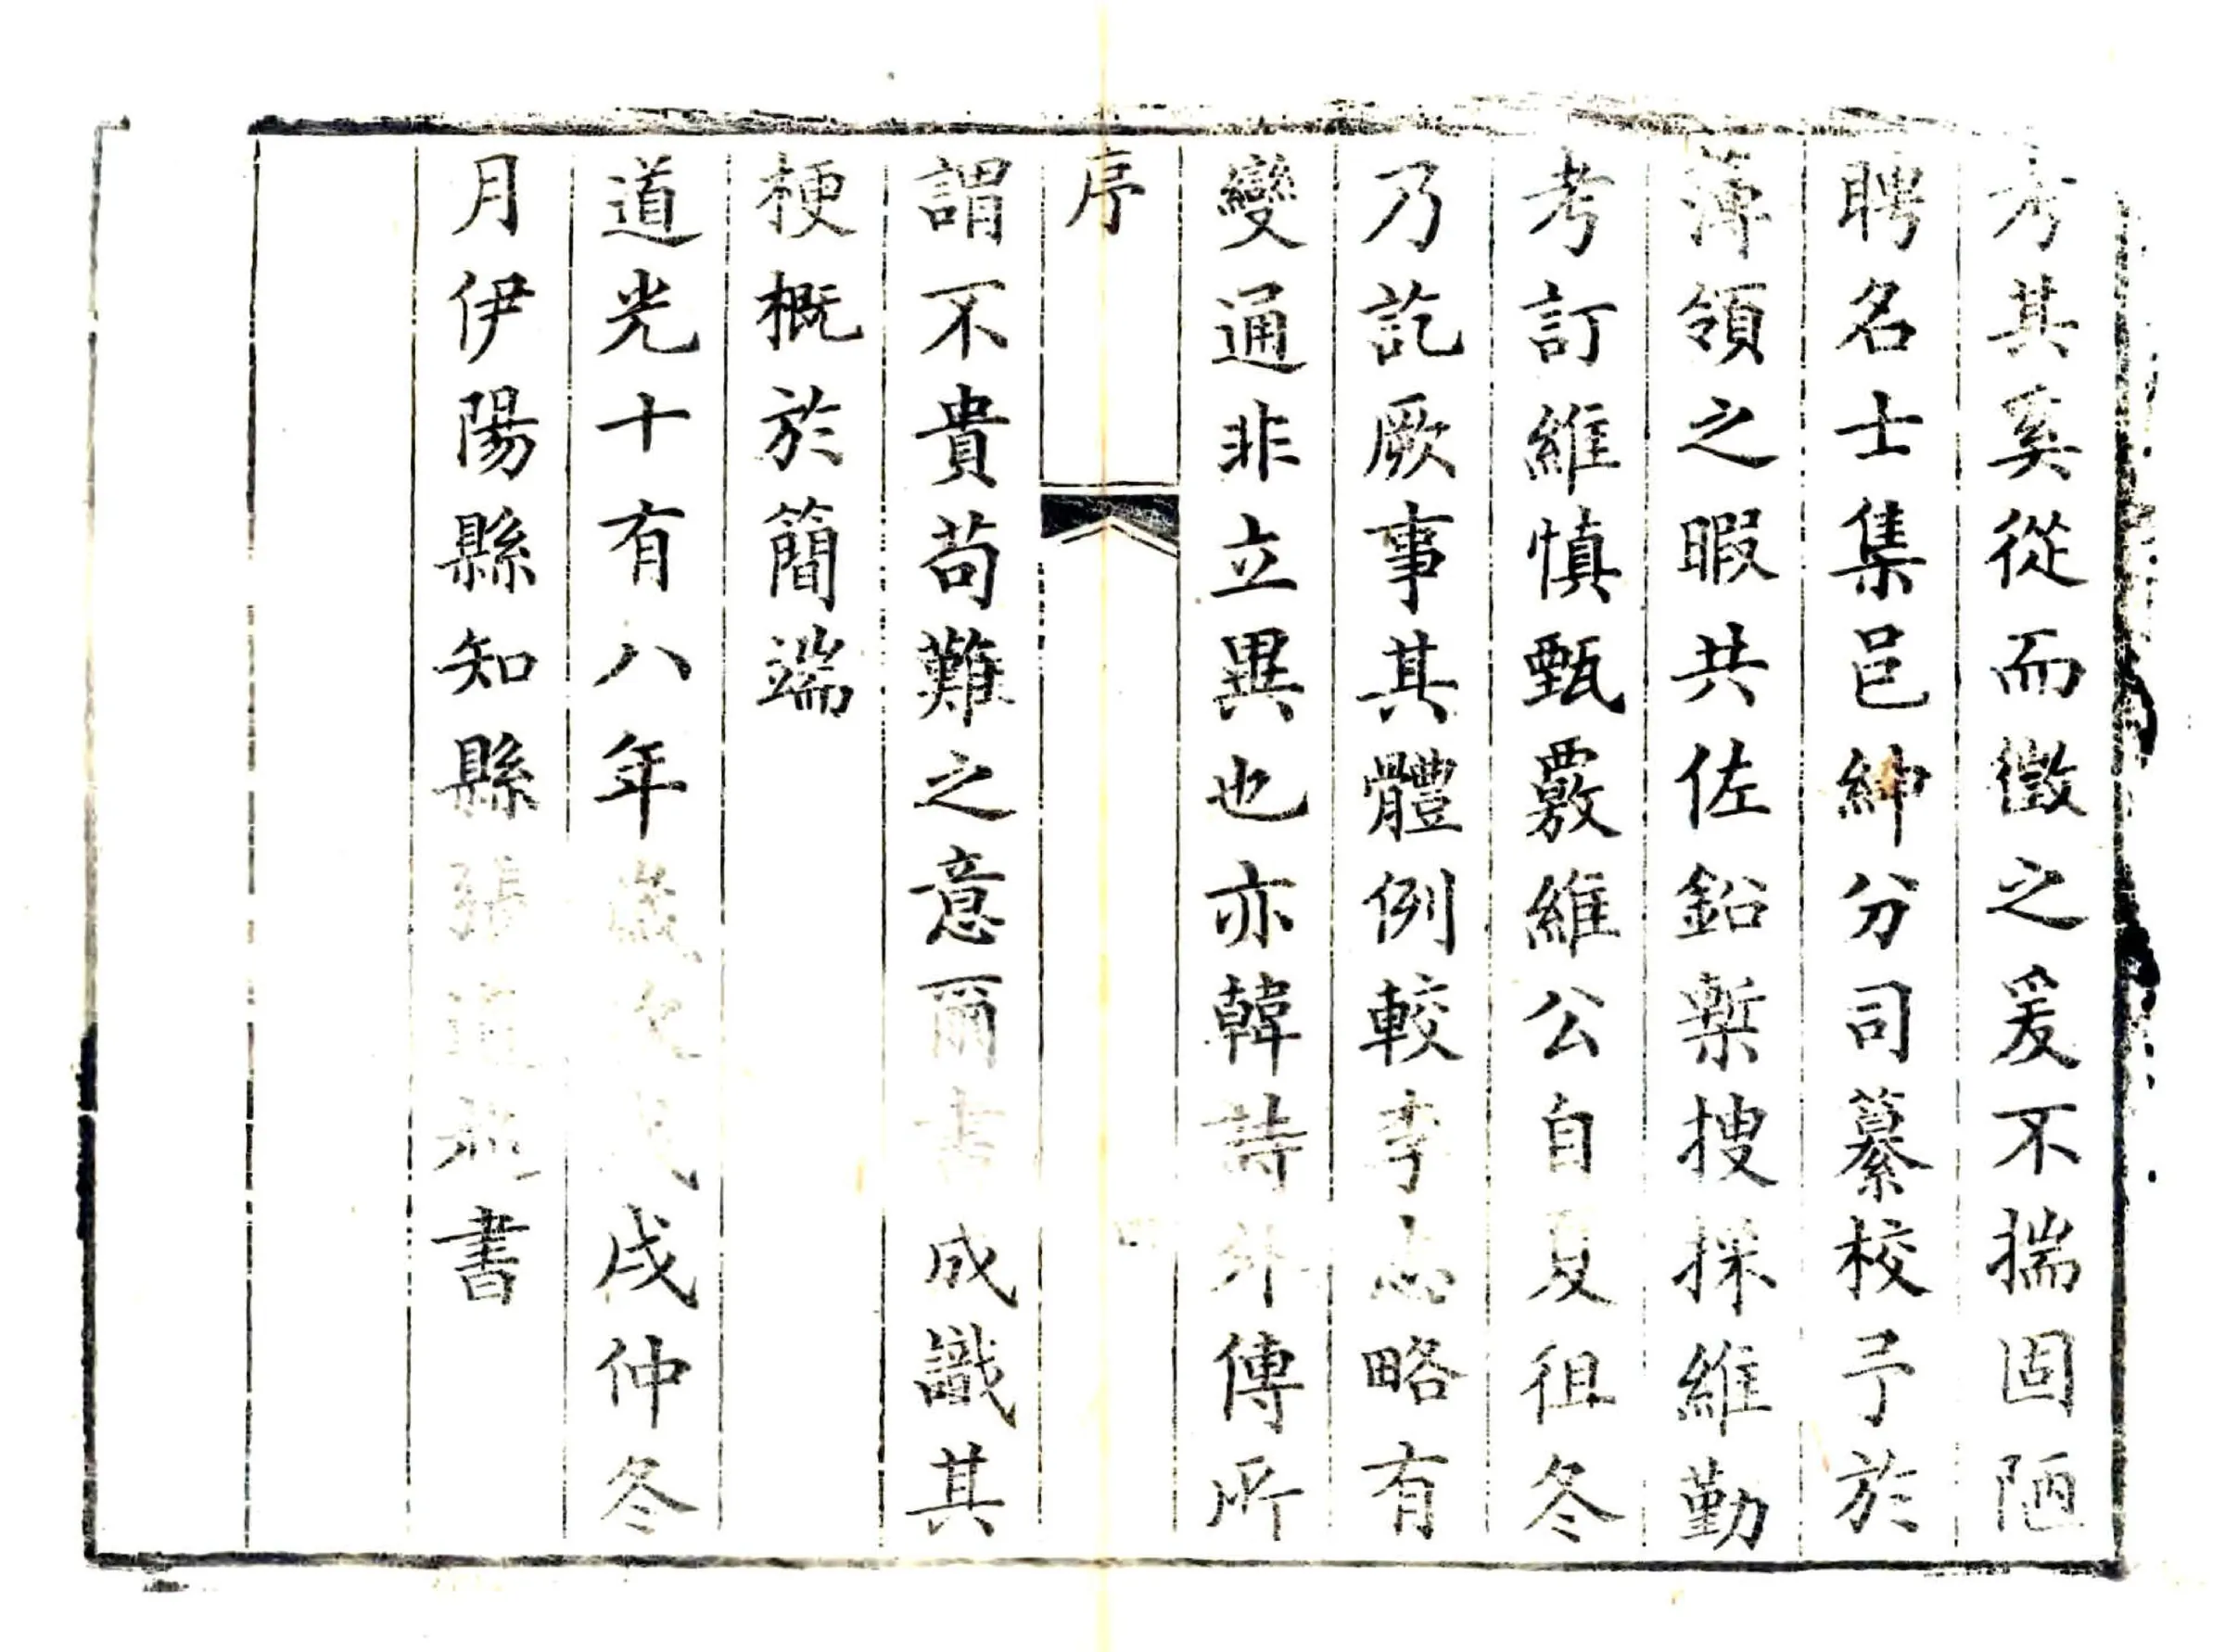 考其奚從而徵之爰不揣固陋
聘名士集邑紳分司纂校予於
薄領之暇共佐鉛槧搜採維勤
考訂維慎甄覈維公自夏徂冬
乃訖厥事其體例較李志略有
變通非立異也亦韓詩外傳所
序
四
謂不貴苟難之意爾書成識其
梗概於簡端
道光十有八年歲次戊戌仲冬
月伊陽縣知縣張道超書